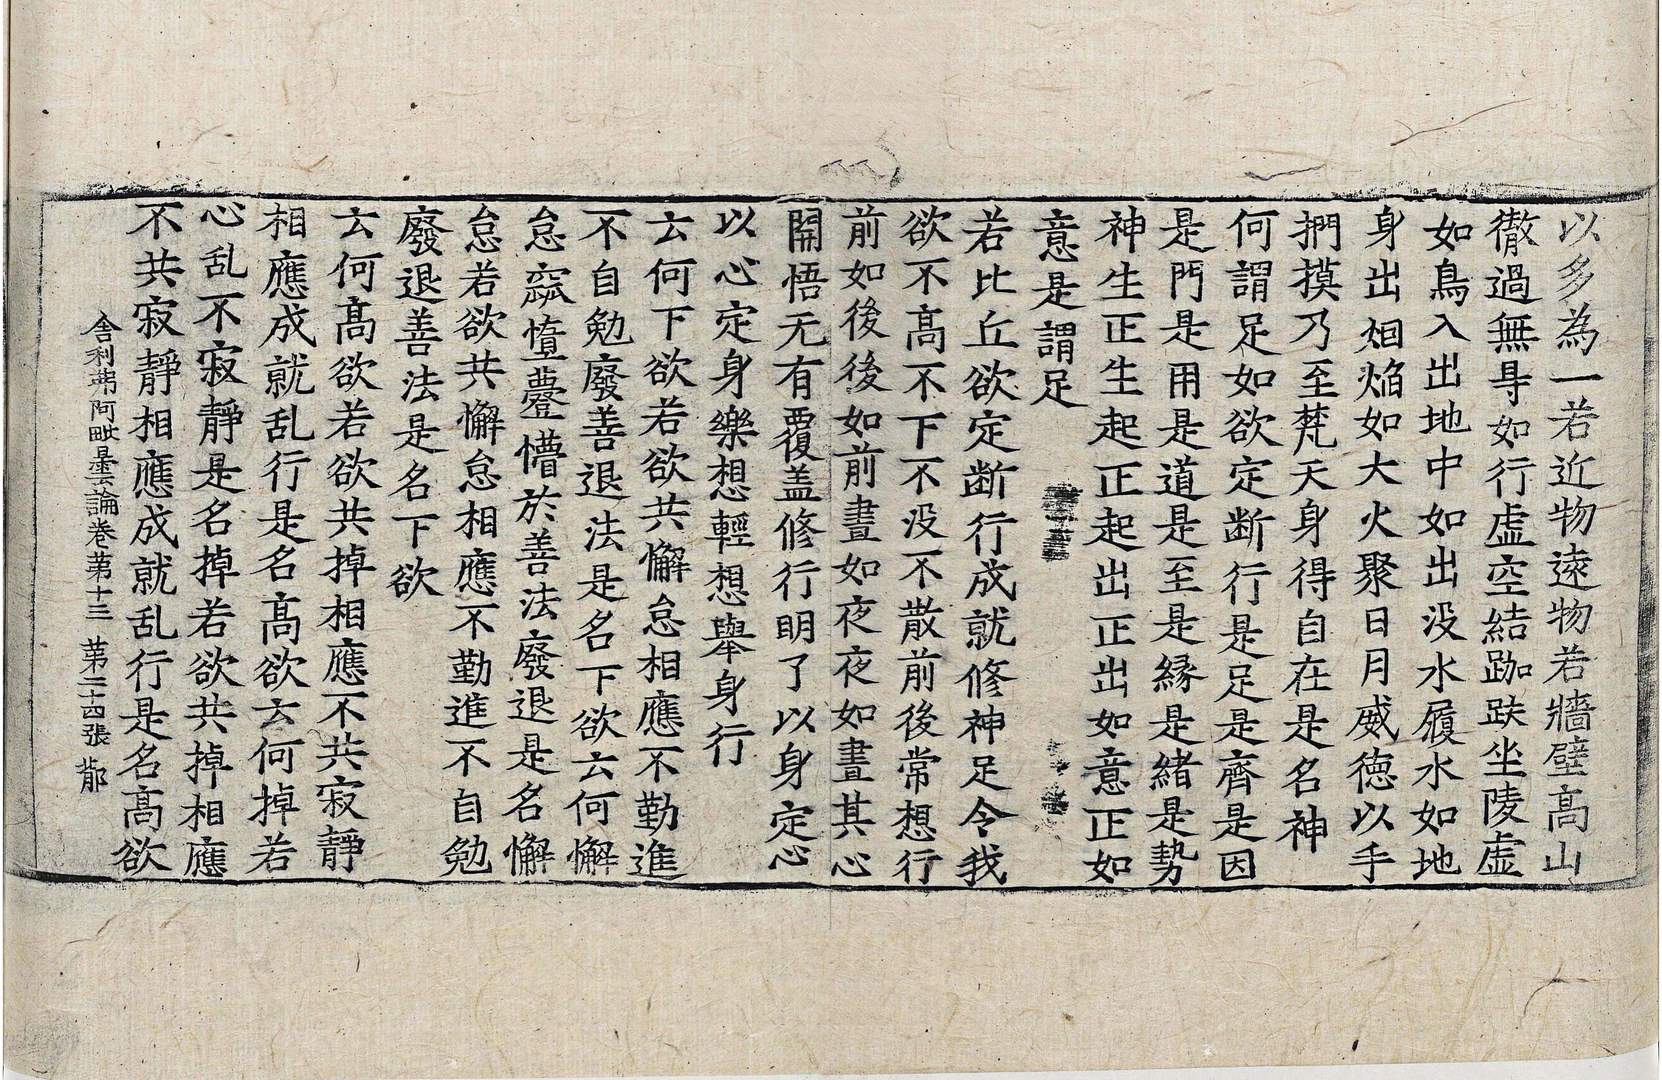 以多為一若近物遠物若牆壁高山
徹過無㝵如行虛空結跏趺坐陵虛
如鳥入出地中如出没水履水如地
身出烟焰如大火聚日月威德以手
捫摸乃至梵天身得自在是名神
何謂足如欲定断行是足是齊是因
是門是用是道是至是縁是緒是勢
神生正生起正起出正出如意正如
意是謂足
若比丘欲定断行成就修神足令我
欲不髙不下不没不散前後常想行
前如後後如前晝如夜夜如晝其心
開悟无有覆盖修行明了以身定心
以心定身樂想輕想舉身行
云何下欲若欲共懈怠相應不勤進
不自勉廢善退法是名下欲云何懈
怠窳惰懵於善法廢退是名懈
怠若欲共懈怠相應不勤進不自勉
廢退善法是名下欲
云何髙欲若欲共掉相應不共寂靜
相應成就乱行是名髙欲云何掉若
心乱不寂靜是名掉若欲共掉相應
不共寂靜相應成就乱行是名髙欲
舍利弗阿毗曇論卷第十三 第二十四張 欝